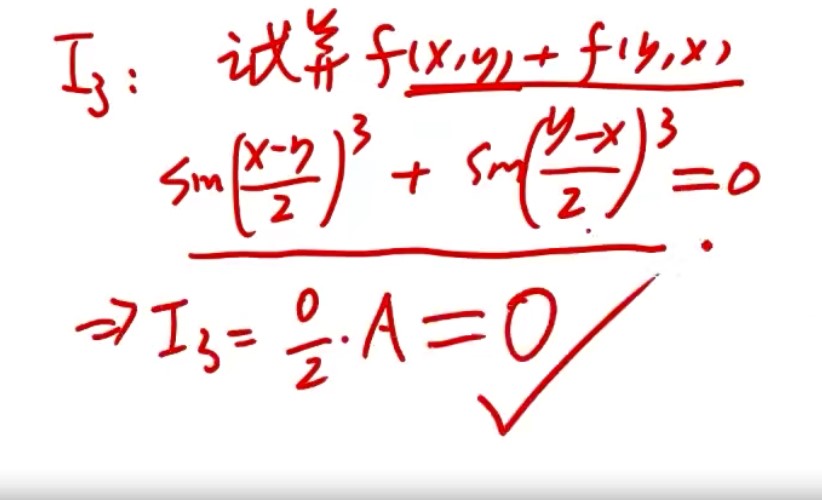 I₃: 试算 f(x,y) + f(y,x)
sin(x-y/2)³ + sin(y-x/2)³ = 0.
⇒ I₃ = 0/2 · A = 0 ✓